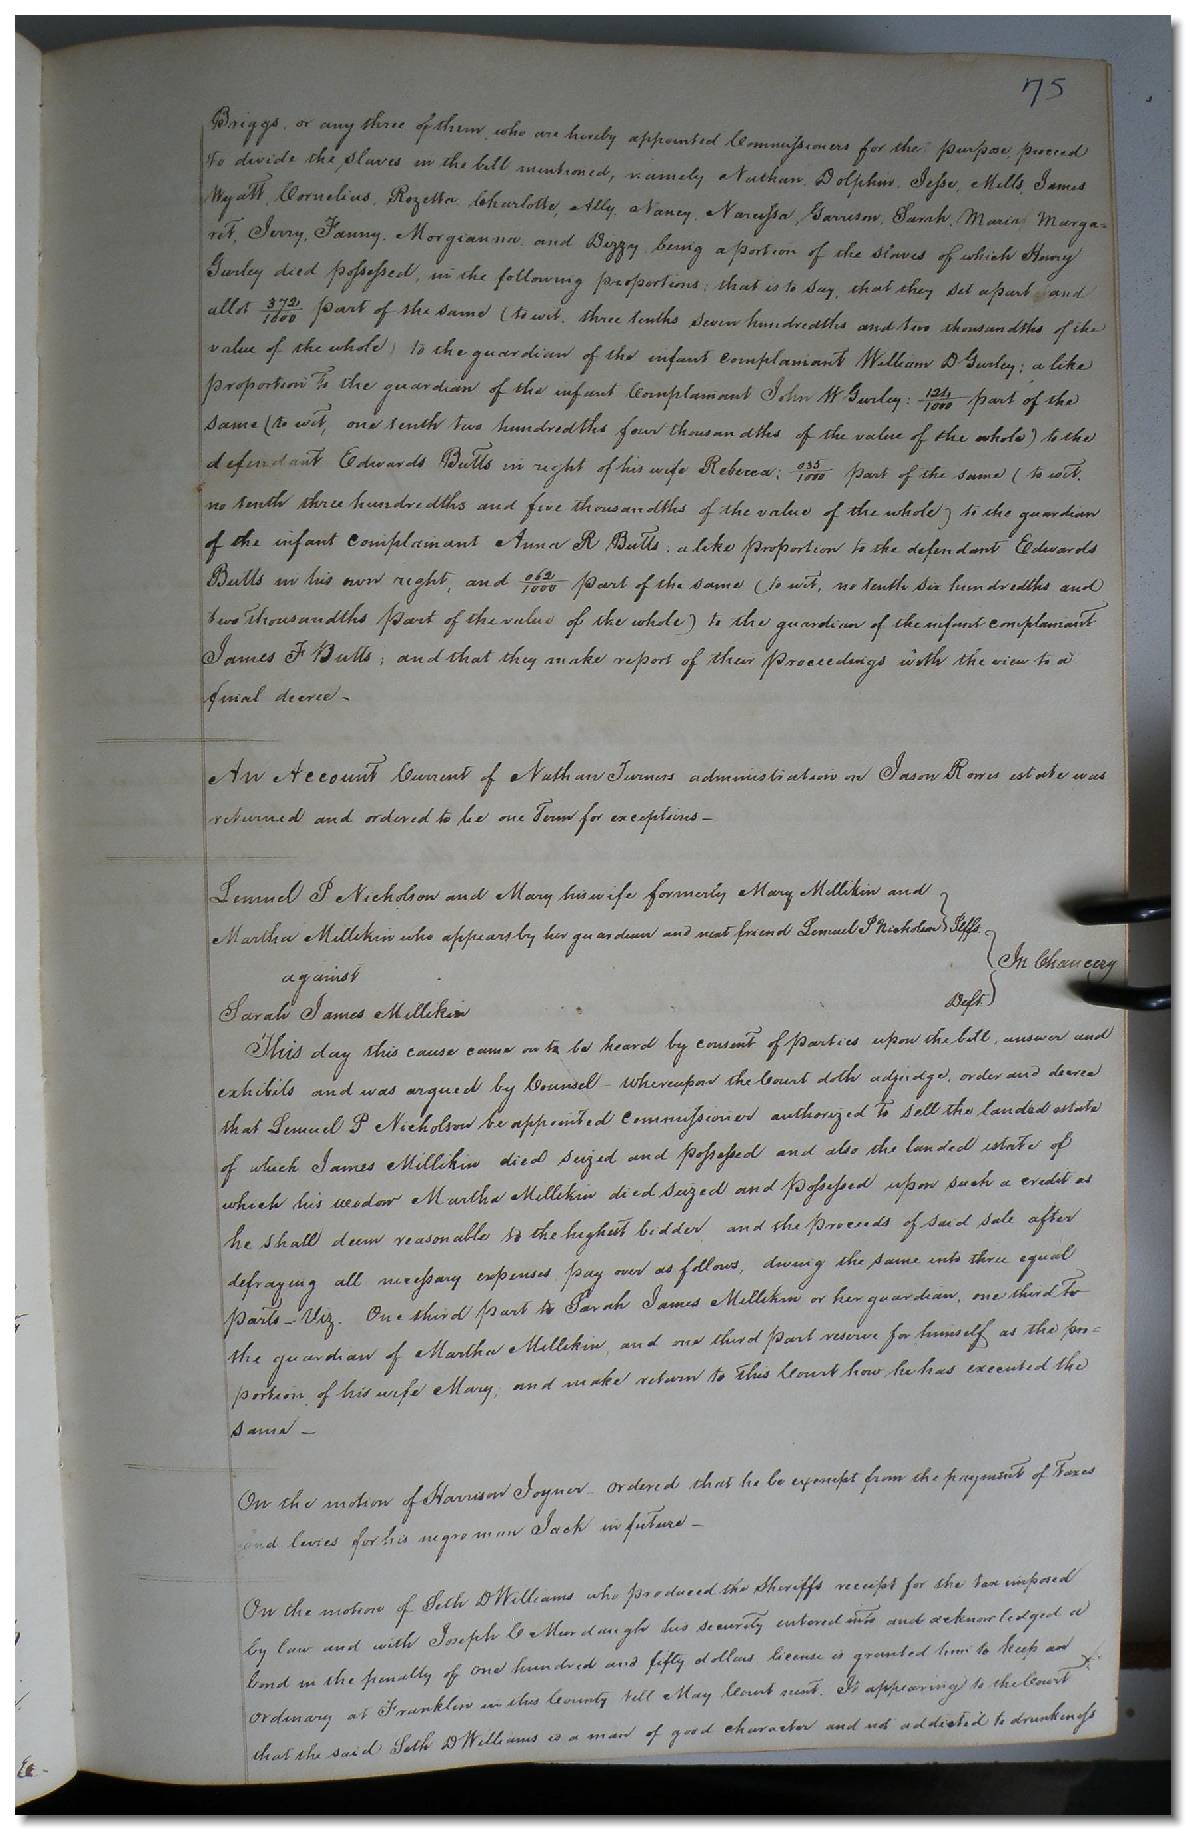 75
Briggs, or any three of them, who are hereby appointed Commissioners for the purpose proceed
to divide the slaves in the bill mentioned, namely Nathan, Dolphin, Jesse, Mills, James
Wyatt, Cornelius, Rozetta, Charlotte, Ally, Nancy, Narcissa, Garrison, Sarah, Maria, Marga=
ret, Jerry, Fanny, Morgianna, and Dizzy, being a portion of the slaves of which Henry
Gurley died possessed, in the following proportions: that is to say, that they set apart and
allot 372/1000 part of the same (to wit, three tenths seven hundredths and two thousandths of the
value of the whole) to the guardian of the infant complainant William D Gurley; a like
proportion to the guardian of the infant Complainant John W Gurley: 124/1000 part of the
same (to wit, one tenth two hundredths four thousandths of the value of the whole) to the
defendant Edwards Butts in right of his wife Rebecca; 035/1000 part of the same (to wit,
no tenth three hundredths and five thousandths of the value of the whole) to the guardian
of the infant complainant Anna R Butts; a like proportion to the defendant Edwards
Butts in his own right, and 062/1000 part of the same (to wit, no tenth six hundredths and
two thousandths part of the value of the whole) to the guardian of the infant complainant
James F Butts; and that they make report of their proceedings with the view to a
final decree -
An Account Current of Nathan Turners administration on Jason Rowes estate was
returned and ordered to lie one Term for exceptions -
Lemuel P Nicholson and Mary his wife formerly Mary Millikin and
Martha Millikin who appears by her guardian and next friend Lemuel P Nicholson } Plffs
against } In Chancery
Sarah James Millikin Deft.
This day this cause came on to be heard by consent of parties upon the bill, answer and
exhibits and was argued by Counsel - Whereupon the Court doth adjudge, order and decree
that Lemuel P Nicholson be appointed Commissioner authorized to sell the landed estate
of which James Millikin died seized and possessed and also the landed estate of
which his widow Martha Millikin died seized and possessed upon such a credit as
he shall deem reasonable to the highest bidder, and the proceeds of said sale after
defraying all necessary expenses, pay over as follows, diving the same into three equal
parts - Viz. One third part to Sarah James Millikin or her guardian, one third to
the guardian of Martha Millikin, and one third part reserve for himself as the pro=
portion of his wife Mary; and make return to this Court how he has executed the
same -
On the motion of Harrison Joyner - ordered that he be exempt from the payment of taxes
and levies for his negro man Jack in future -
On the motion of Seth D Williams who produced the Sheriffs receipt for the tax imposed
by law and with Joseph C Murdaugh his security entered into and acknowledged a
bond in the penalty of one hundred and fifty dollars license is granted him to keep an
ordinary at Franklin in this County till May Court next. It appearing to the Court
that the said Seth D Williams is a man of good character and not addicted to drunkenness